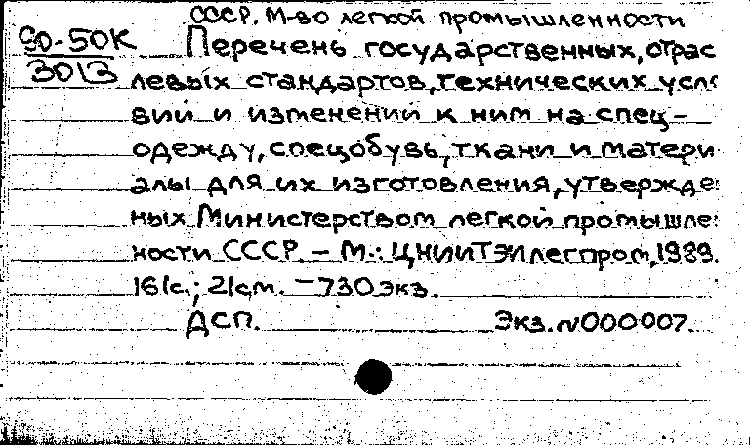 СССР. М-во легкой промышленности
90-50К Перечень государственных, отрас
3013 левых стандартов, технических усло
вий и изменений к ним на спец-
одежду, спецобувь, ткани и матери
алы для их изготовления, утвержде
ных Министерством легкой промышле
ности СССР. – М.: ЦНИИТЭИлегпром, 1989.
161с.; 21см. – 730 экз.
ДСП. Экз. N 000007.